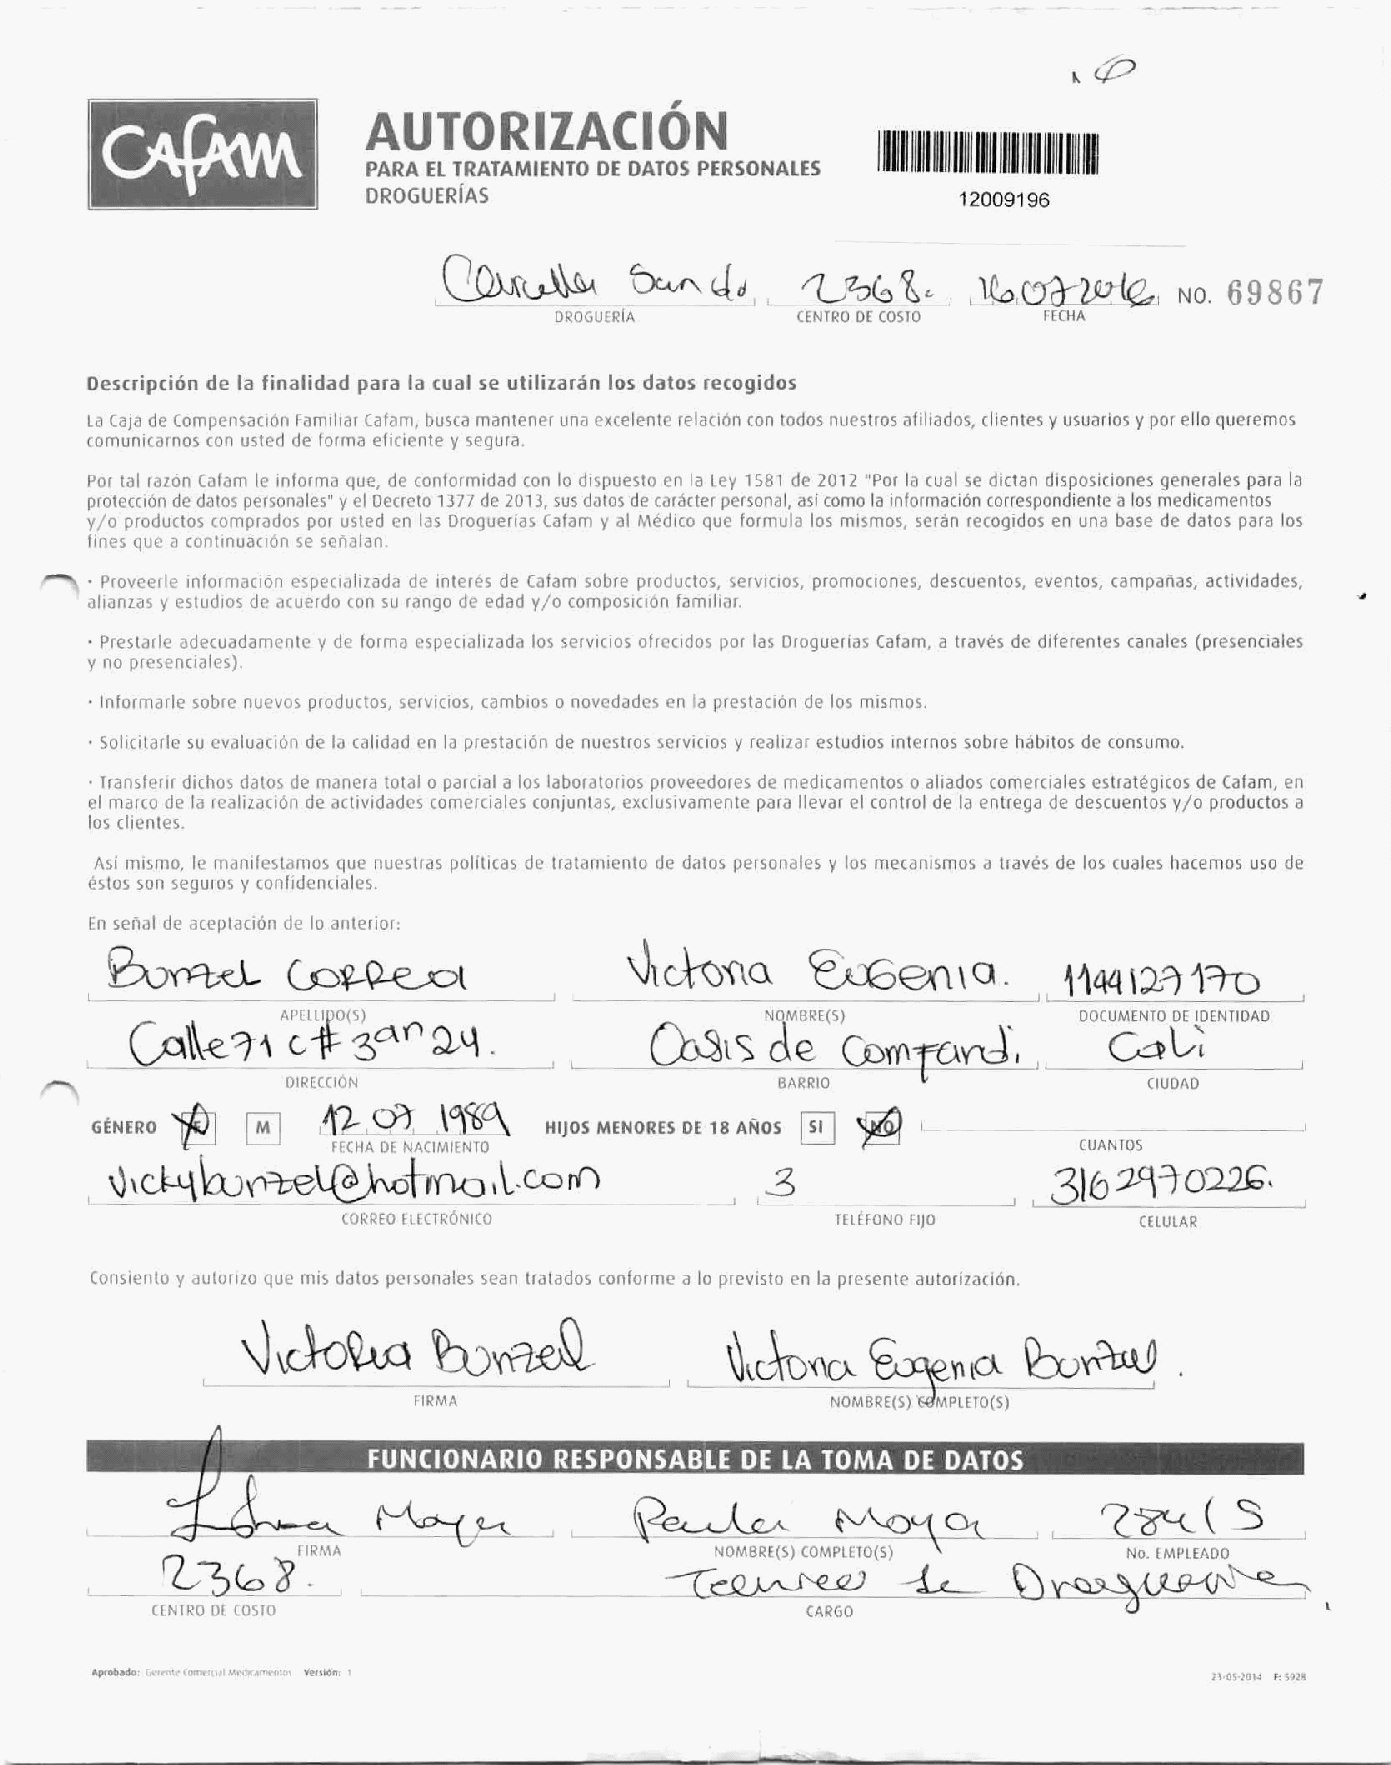 CAFAM
AUTORIZACIÓN
PARA EL TRATAMIENTO DE DATOS PERSONALES
DROGUERÍAS
12009196
2368. 16.07.2016 NO. 69867
DROGUERÍA CENTRO DE COSTO FECHA
Descripción de la finalidad para la cual se utilizarán los datos recogidos
La Caja de Compensación Familiar Cafam, busca mantener una excelente relación con todos nuestros afiliados, clientes y usuarios y por ello queremos
comunicarnos con usted de forma eficiente y segura.
Por tal razón Cafam le informa que, de conformidad con lo dispuesto en la Ley 1581 de 2012 "Por la cual se dictan disposiciones generales para la
protección de datos personales" y el Decreto 1377 de 2013, sus datos de carácter personal, así como la información correspondiente a los medicamentos
y/o productos comprados por usted en las Droguerías Cafam y al Médico que formula los mismos, serán recogidos en una base de datos para los
fines que a continuación se señalan.
· Proveerle información especializada de interés de Cafam sobre productos, servicios, promociones, descuentos, eventos, campañas, actividades,
alianzas y estudios de acuerdo con su rango de edad y/o composición familiar.
· Prestarle adecuadamente y de forma especializada los servicios ofrecidos por las Droguerías Cafam, a través de diferentes canales (presenciales
y no presenciales).
· Informarle sobre nuevos productos, servicios, cambios o novedades en la prestación de los mismos.
· Solicitarle su evaluación de la calidad en la prestación de nuestros servicios y realizar estudios internos sobre hábitos de consumo.
· Transferir dichos datos de manera total o parcial a los laboratorios proveedores de medicamentos o aliados comerciales estratégicos de Cafam, en
el marco de la realización de actividades comerciales conjuntas, exclusivamente para llevar el control de la entrega de descuentos y/o productos a
los clientes.
Así mismo, le manifestamos que nuestras políticas de tratamiento de datos personales y los mecanismos a través de los cuales hacemos uso de
éstos son seguros y confidenciales.
En señal de aceptación de lo anterior:
Bunzel Correa Victoria Eugenia. 1144127170
APELLIDO(S) NOMBRE(S) DOCUMENTO DE IDENTIDAD
Calle 71 c # 3an 24. Oasis de Comfandi. Cali
DIRECCIÓN BARRIO CIUDAD
GÉNERO F M 12.07 1989 HIJOS MENORES DE 18 AÑOS SI NO
FECHA DE NACIMIENTO CUANTOS
vickybunzel@hotmail.com 3 3162970226.
CORREO ELECTRÓNICO TELÉFONO FIJO CELULAR
Consiento y autorizo que mis datos personales sean tratados conforme a lo previsto en la presente autorización.
Victoria Bunzel Victoria Eugenia Bunzel.
FIRMA NOMBRE(S) COMPLETO(S)
FUNCIONARIO RESPONSABLE DE LA TOMA DE DATOS
Moya Paula Moya 28415
FIRMA NOMBRE(S) COMPLETO(S) No. EMPLEADO
2368. Tecnico de Drogueria
CENTRO DE COSTO CARGO
Aprobado: Gerente Comercial Medicamentos Versión: 1
21-05-2014 F: 5928